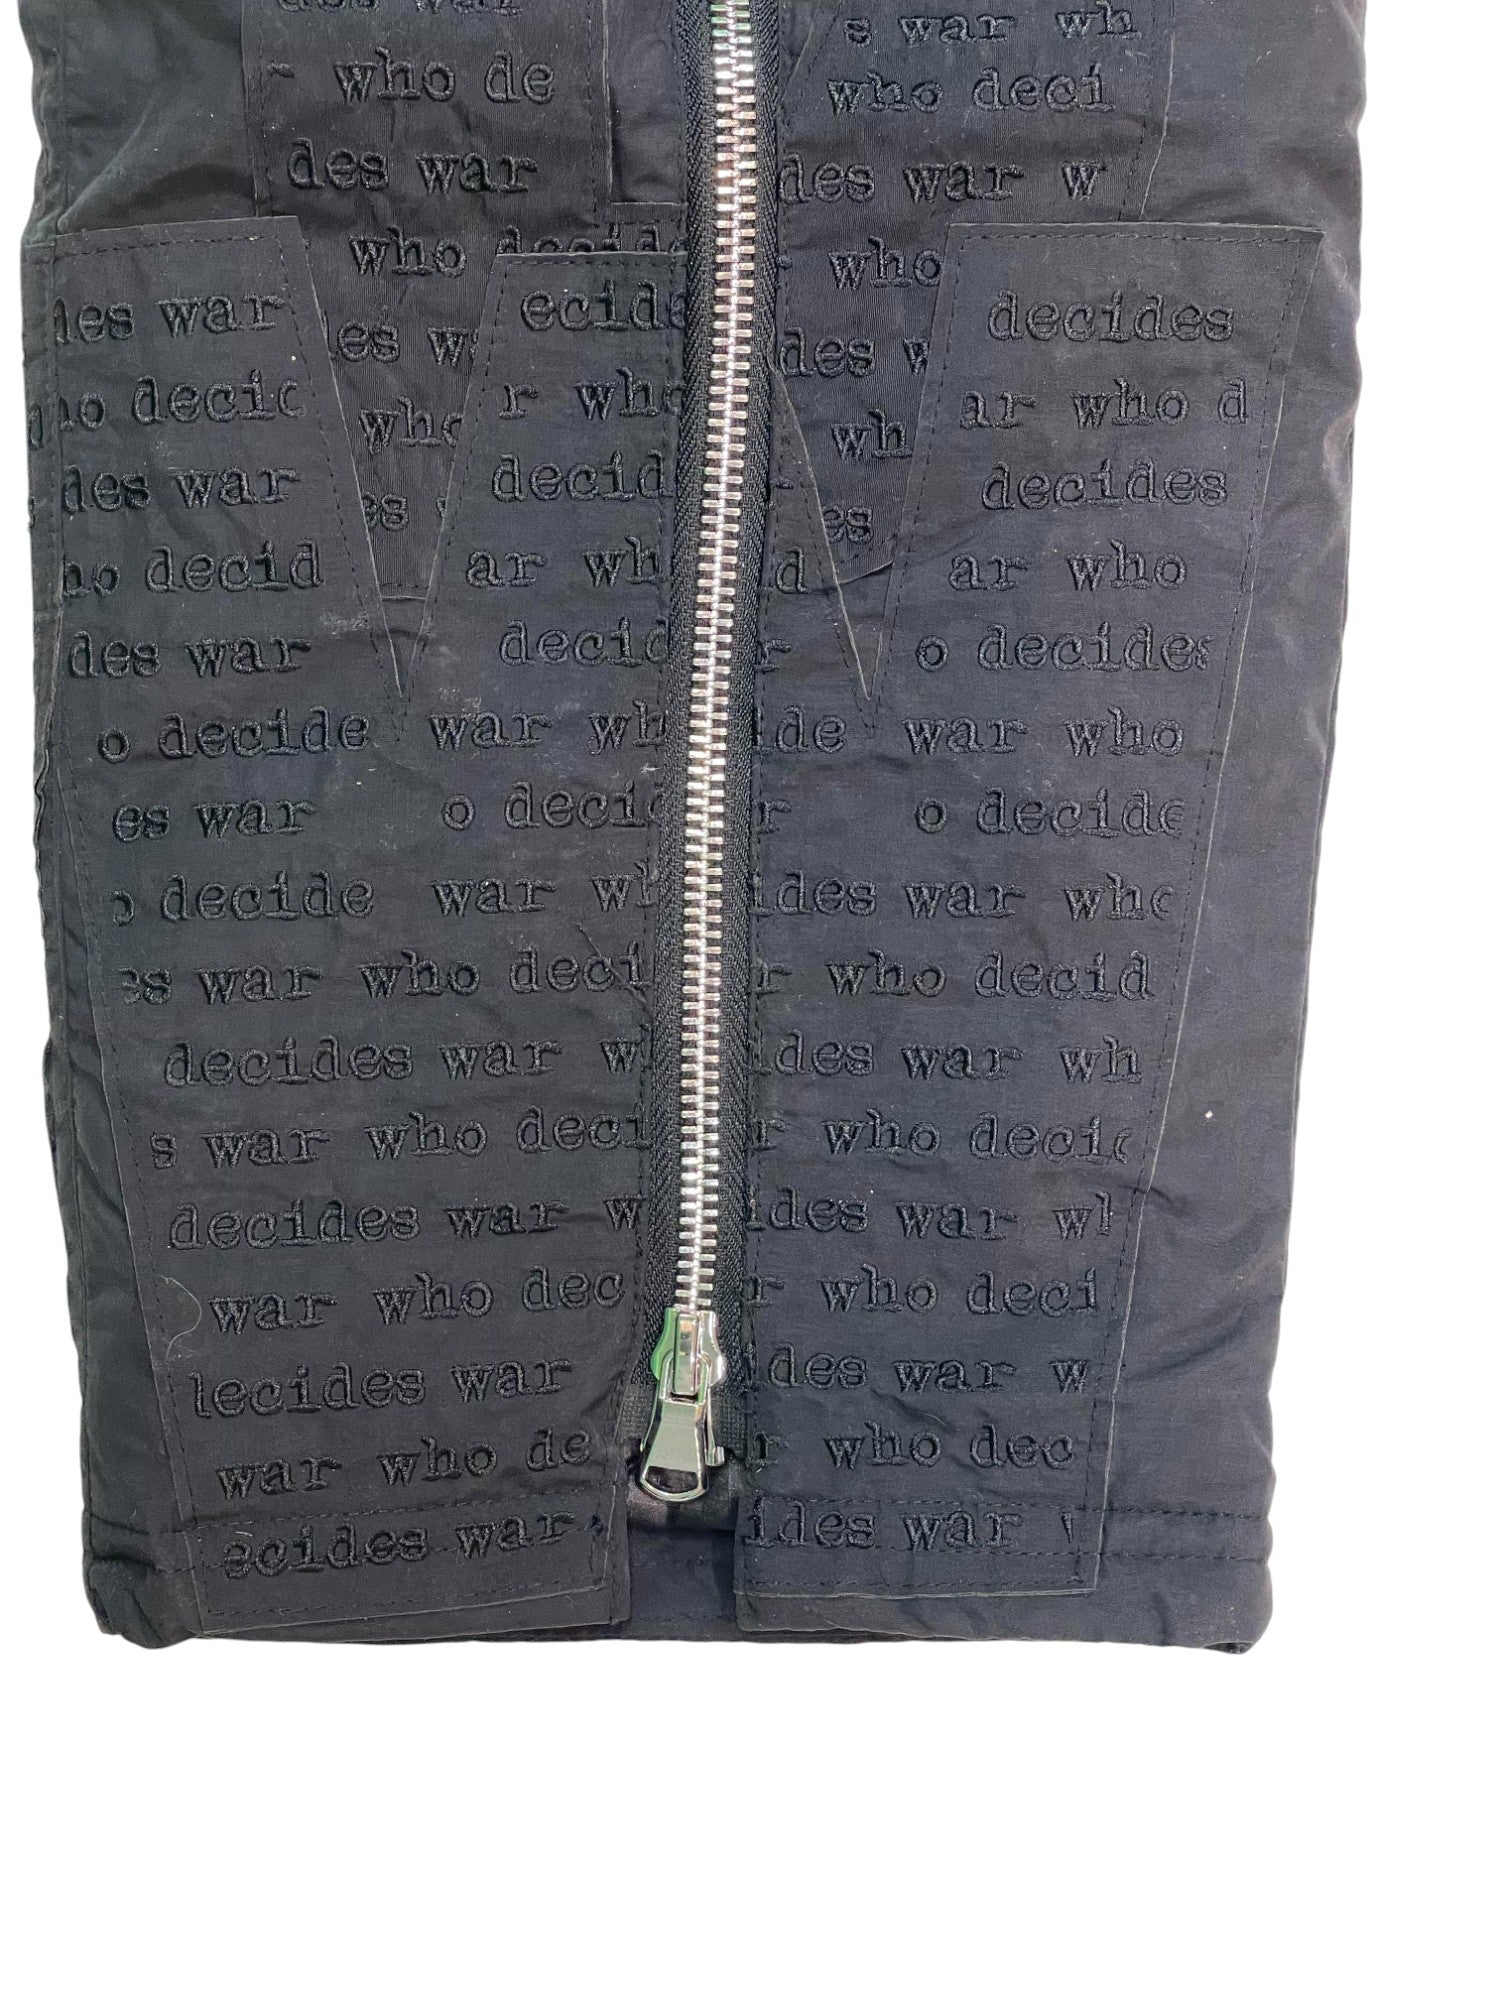 des war
s war wh
who de
who deci
des war
des war w
who decide
who
des war
ecide
decides
es w
des w
ho decid
r who
ar who d
who
wh
des war
decid
decides
es
es
ho decid
ar wh
d
ar who
des war
decid
r
o decides
o decide
war wh
ide
war who
es war
o deci
r
o decide
o decide
war wh
ides
war who
es war who deci
r who decid
decides war w
des war wh
s war who deci
r who decid
decides war w
ides war wh
war who dec
r who deci
lecides war
des war w
war who de
r who dec
ecides war
ides war